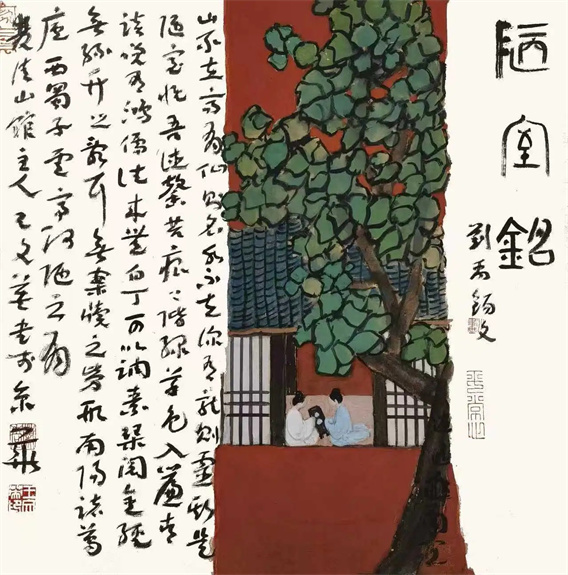 陋室銘
劉禹錫文
山不在高有仙則名水不在深有龍則靈斯是
陋室惟吾德馨苔痕上階綠草色入簾青
談笑有鴻儒往來無白丁可以調素琴閱金經
無絲竹之亂耳無案牘之勞形南陽諸葛
廬西蜀子雲亭何陋之有
山館主人書於京